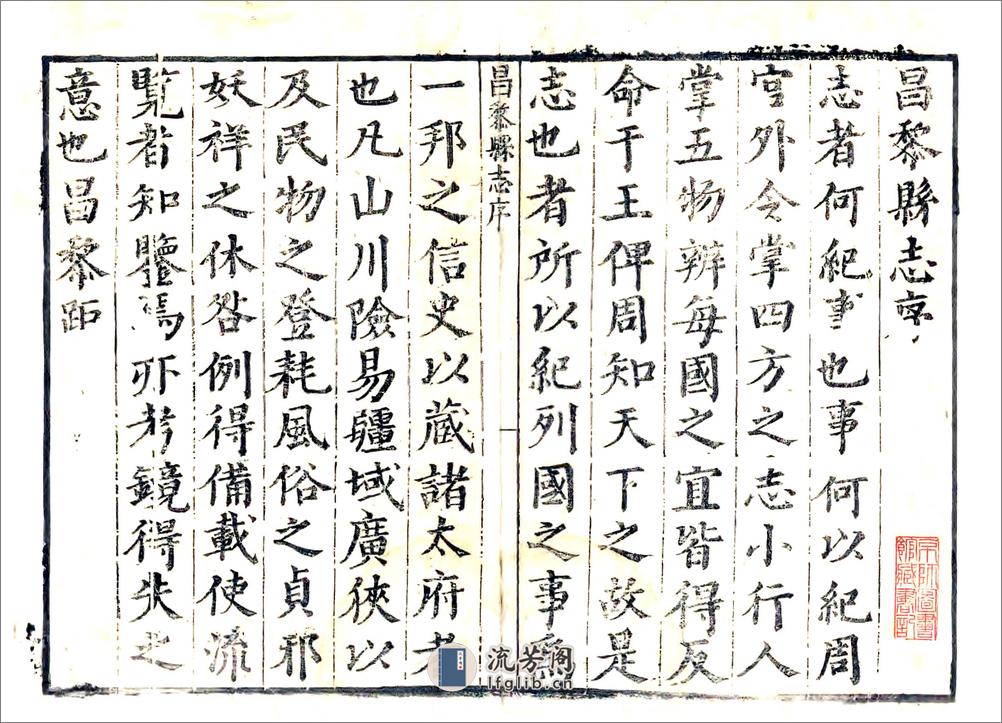 昌黎縣志序
志者何紀事也事何以紀周
官外令掌四方之志小行人
掌五物辨每國之宜皆得反
命于王俾周知天下之故是
志也者所以紀列國之事爲
昌黎縣志序
一邦之信史以藏諸太府者
也凡山川險易疆域廣狹以
及民物之登耗風俗之貞邪
妖祥之休咎例得備載使流
覧者知鑒焉所考鏡得失之
意也昌黎距
京師圖書
館藏書記
流芳閣
lfglib.cn